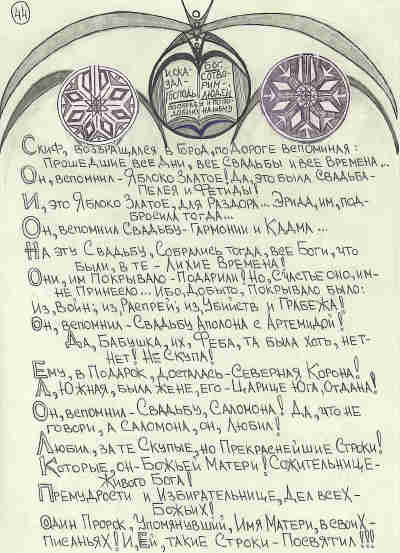 44
И СКА-
ЗАЛ-
ГОСПОДЬ
БОГ:
СОТВО-
РИМ-
ЛЮДЕЙ
Скиф, возвращался в Город, по Дороге вспоминая:
Прошедшие все Дни, все Свадьбы и все Времена...
Он, вспомнил-Яблоко Златое! Да, это была Свадьба-
Пелея и Фетиды!
И, это Яблоко Златое, для Раздора... Эрида, им, под-
бросила тогда...
Он, вспомнил Свадьбу-Гармонии и Кадма...
На эту Свадьбу, Собрались тогда, все Боги, что
были, в те-Лихие Времена!
Они, им Покрывало-Подарили! Но, Счастье оно, им-
не Принесло... Ибо, Добыто, Покрывало было:
Из, Войн; из, Распрей; из, Убийств и Грабежа!
Он, вспомнил-Свадьбу Аполона с Артемидой!
Да, Бабушка, их, Феба, та была хоть, нет-
нет! Не Скупа!
Ему, в Подарок, досталась-Северная Корона!
А, Южная, была Жене, его-Царице Юга, Отдана!
Он, вспомнил-Свадьбу, Саломона! Да, что не
говори, а Саломона, он, Любил!
Любил, за те Скупые, но Прекраснейшие Строки!
Которые, он-Божьей Матери! Сожительнице-
Живого Бога!
Премудрости и Избирательнице, Дел всех-
Божьих!
Один Пророк, Упомянувший, Имя Матери, в своих-
Писаньях! И, Ей, такие Строки-Посвятил!!!